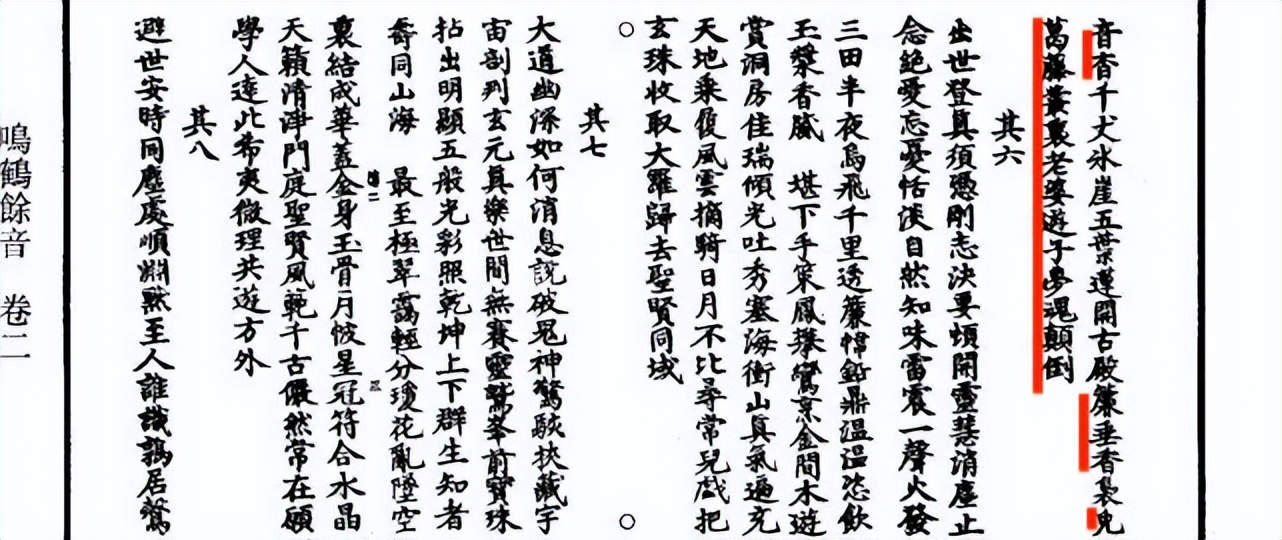 音杳千丈冰崖五葉蓮開古殿簾垂香裊兔
葛藤叢裏老婆遊子夢魂顛倒
其六
出世登真須憑剛志決要頓開靈慧消塵止
念絕愛忘憂恬淡自然知味雷震一聲火發
三田半夜烏飛千里透簾幃鉛鼎溫溫恣飲
玉漿香膩 堪下手策鳳攀鸞烹金間木遊
賞洞房佳瑞傾光吐秀塞海衝山真氣遍充
天地乘復風雲摘騎日月不比尋常兒戲把
玄珠收取大羅歸去聖賢同域
其七
大道幽深如何消息說破鬼神驚駭挾藏宇
宙剖判玄元真樂世間無賽靈鷲峯前寶珠
拈出明顯五般光彩照乾坤上下群生知者
壽同山海 最至極翠靄輕分瓊花亂墜空
裏結成華蓋金身玉骨月帔星冠符合水晶
天籟清淨門庭聖賢風範千古儼然常在願
學人達此希夷微理共遊方外
其八
避世安時同塵處順淵默至人誰識鶉居鷇
鳴鶴餘音 卷二